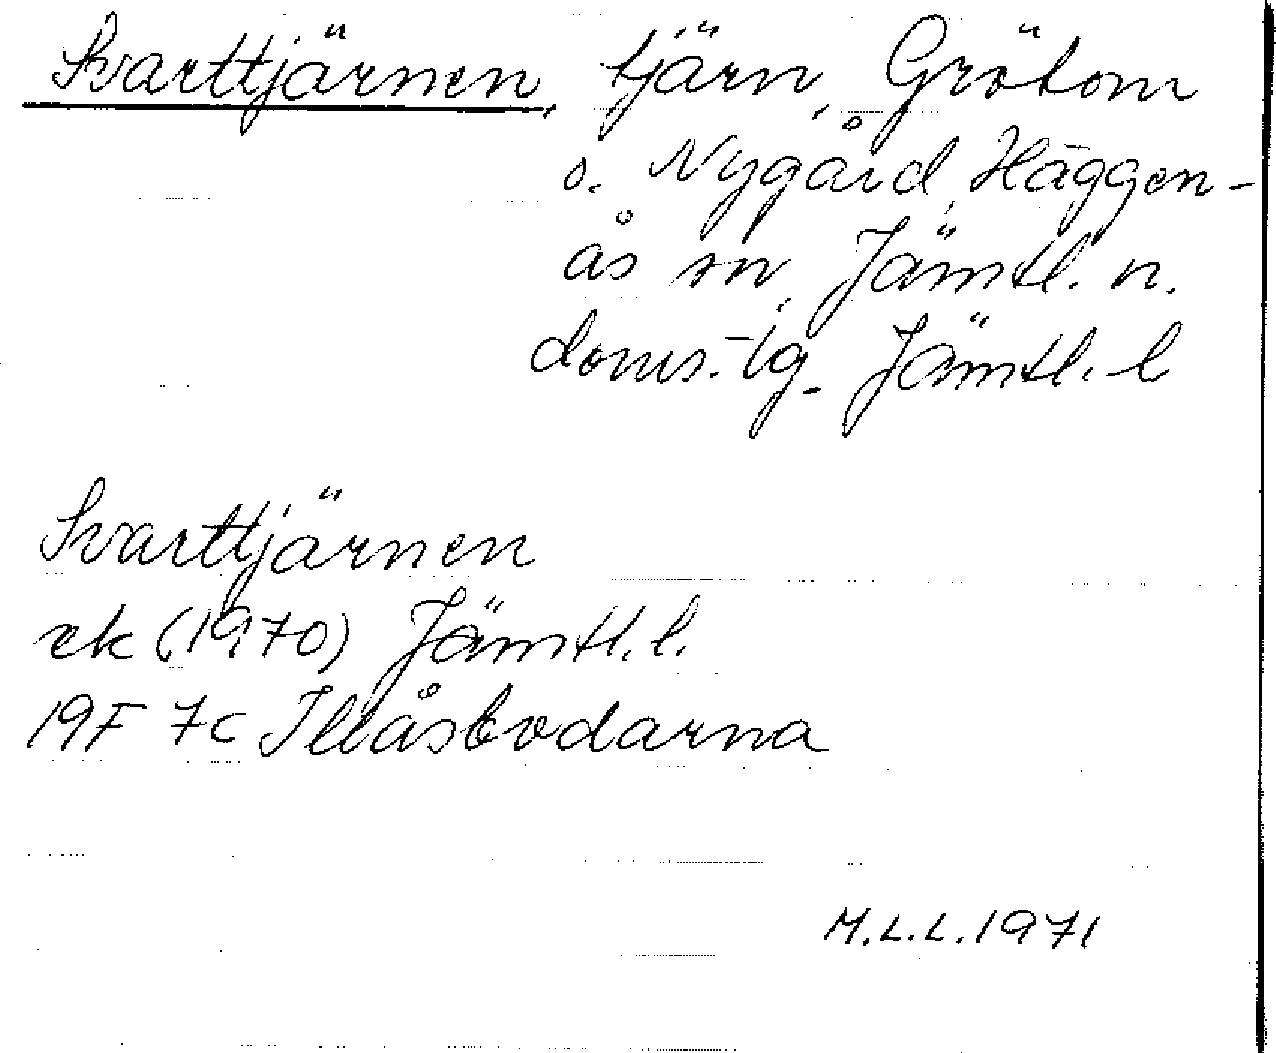 Svarttjärnen, tjärn, Grötom
o. Nygård, Häggen-
ås sn, Jämtl. n.
doms.-lg. Jämtl. l
Svarttjärnen
ek (1970) Jämtl. l.
19F 7c Illåsbodarna
M.L.L. 1971